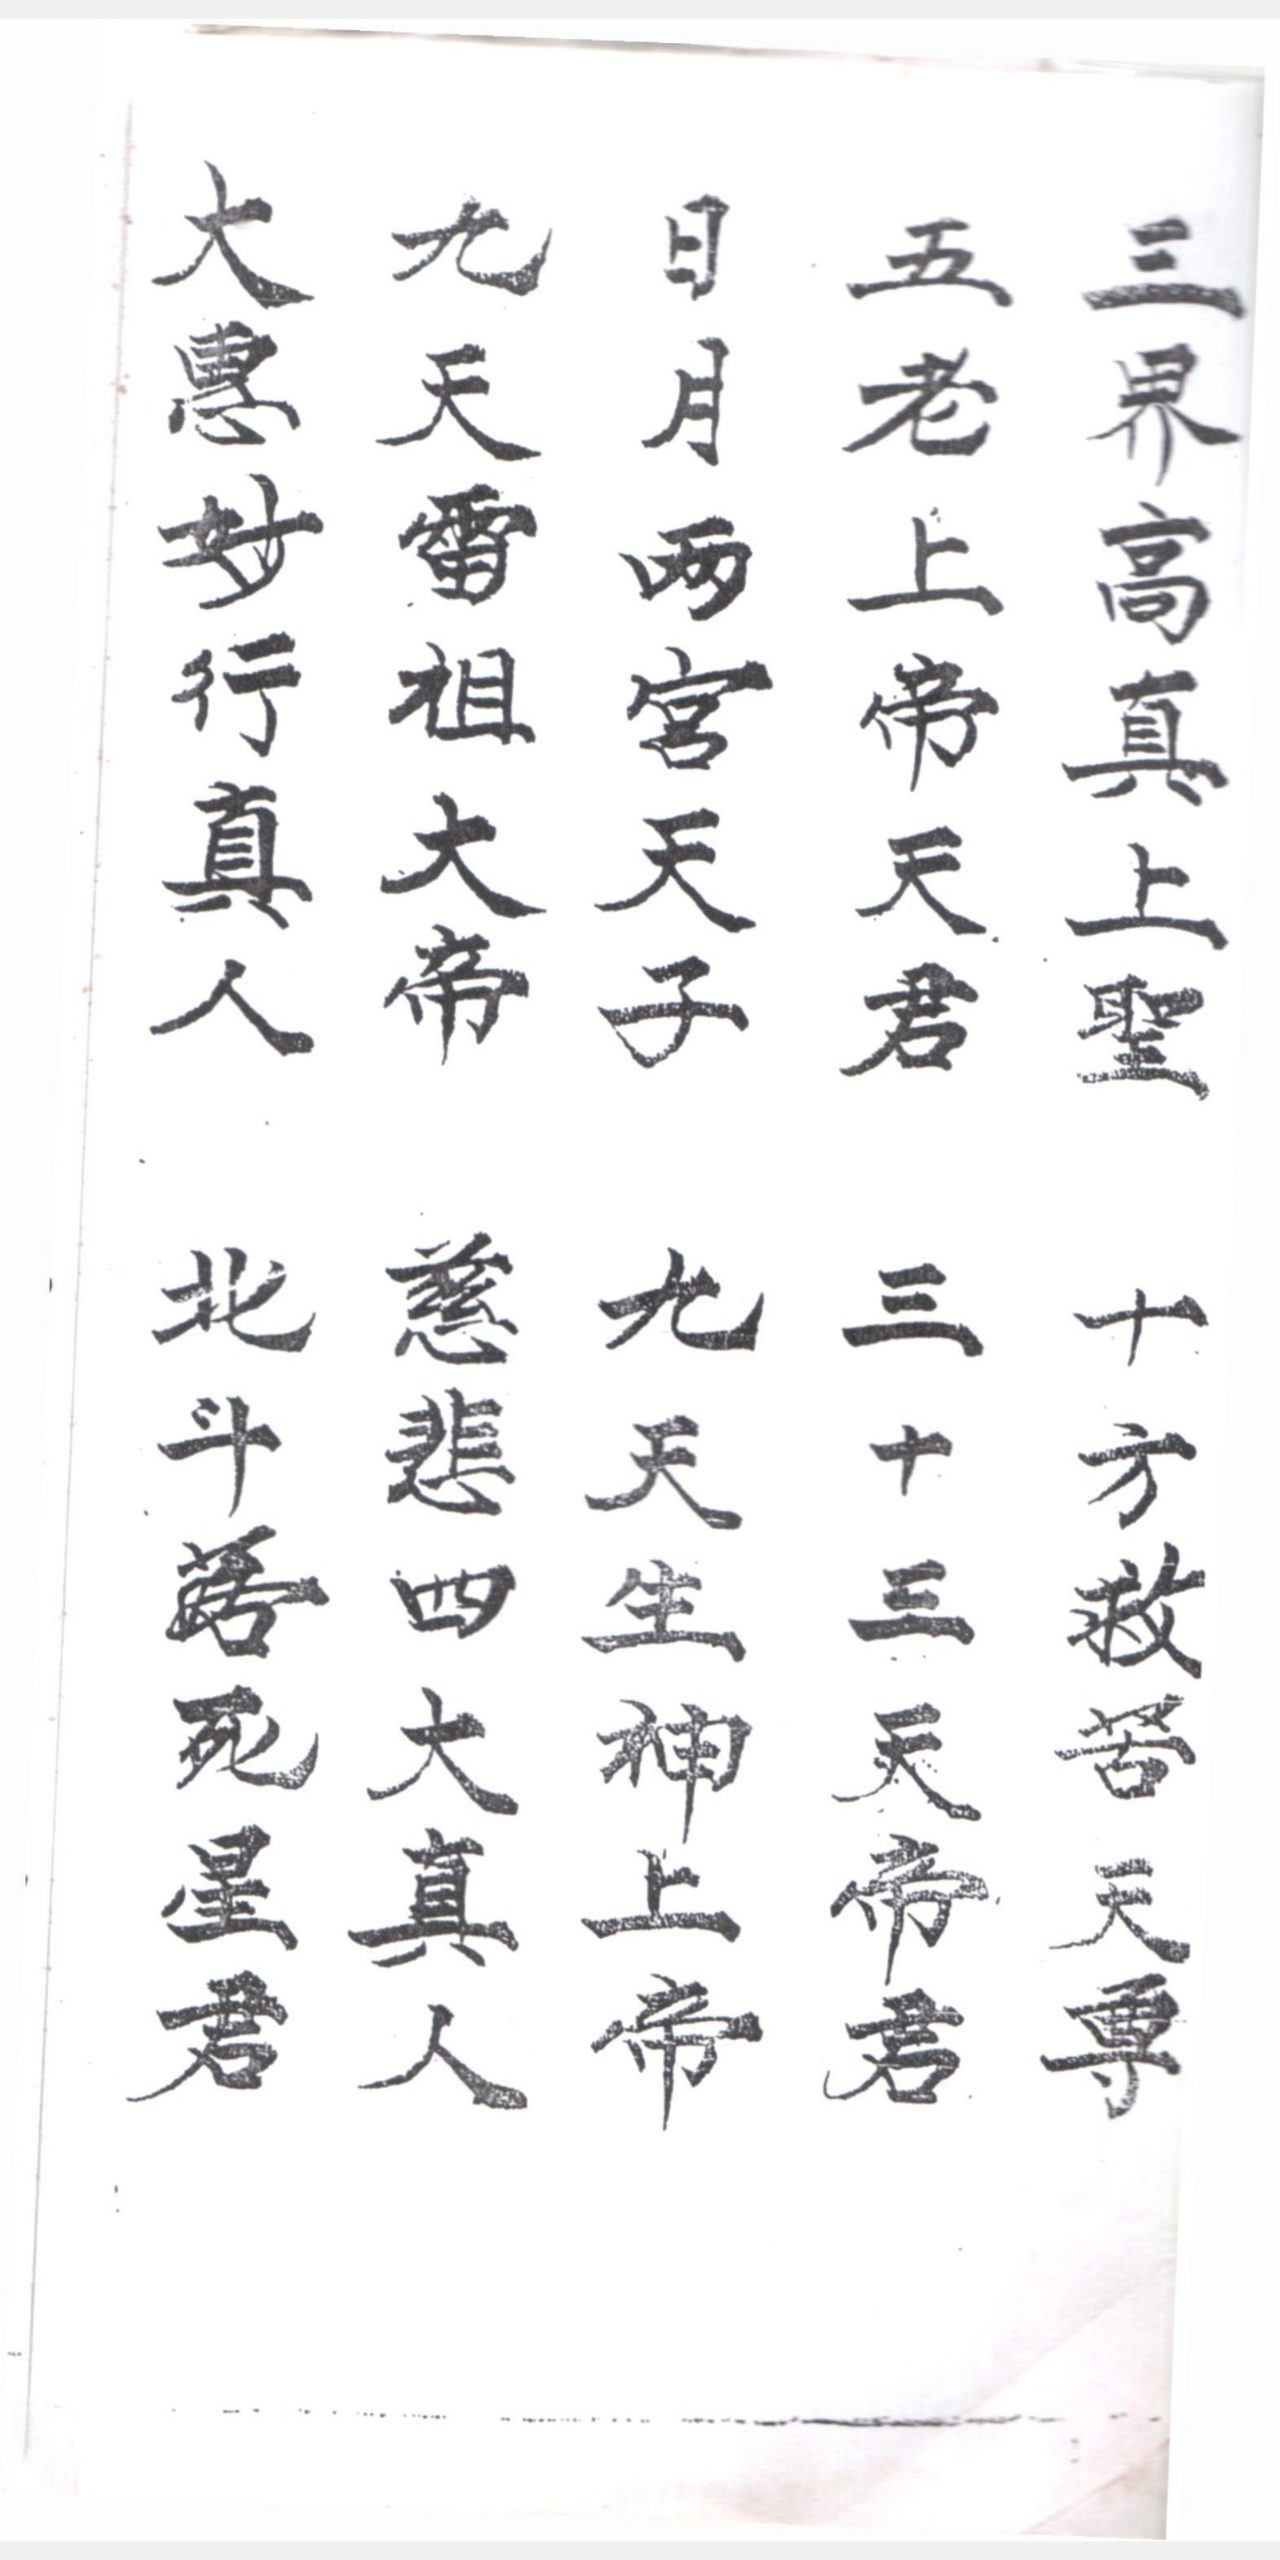 三界高真上聖　十方救苦天尊
五老上帝天君　三十三天帝君
日月兩宮天子　九天生神上帝
九天雷祖大帝　慈悲四大真人
大惠妙行真人　北斗落死星君